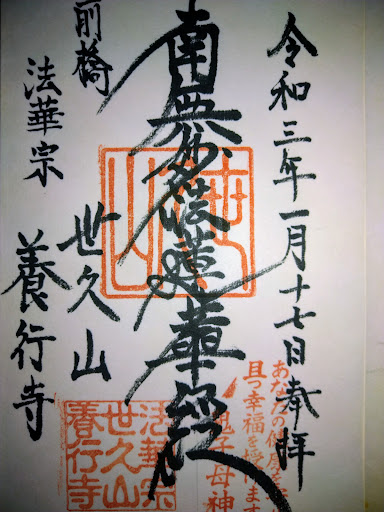 令和三年一月十七日奉拝
南無妙法蓮華経
前橋
世久山
法華宗
養行寺
世久山
あなたの健康を
且つ幸福を授けます
鬼子母神
法華宗
世久山
養行寺